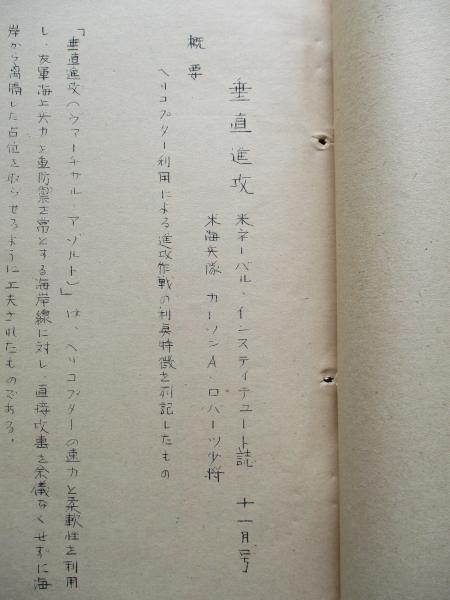 垂直進攻 米ネーバル・インスティテュート誌 十一月号
米海兵隊 カーソンA・ロバーツ少将
概要
ヘリコプター利用による進攻作戦の利点特徴を列記したもの
「垂直進攻(ヴァーチカル アソルト)」は、ヘリコプターの速力と柔軟性を利用
し、友軍海上兵力を重防禦を常とする海岸線に対し 直接攻撃を余儀なくせずに海
岸から離隔した占位を取らせるように工夫されたものである。